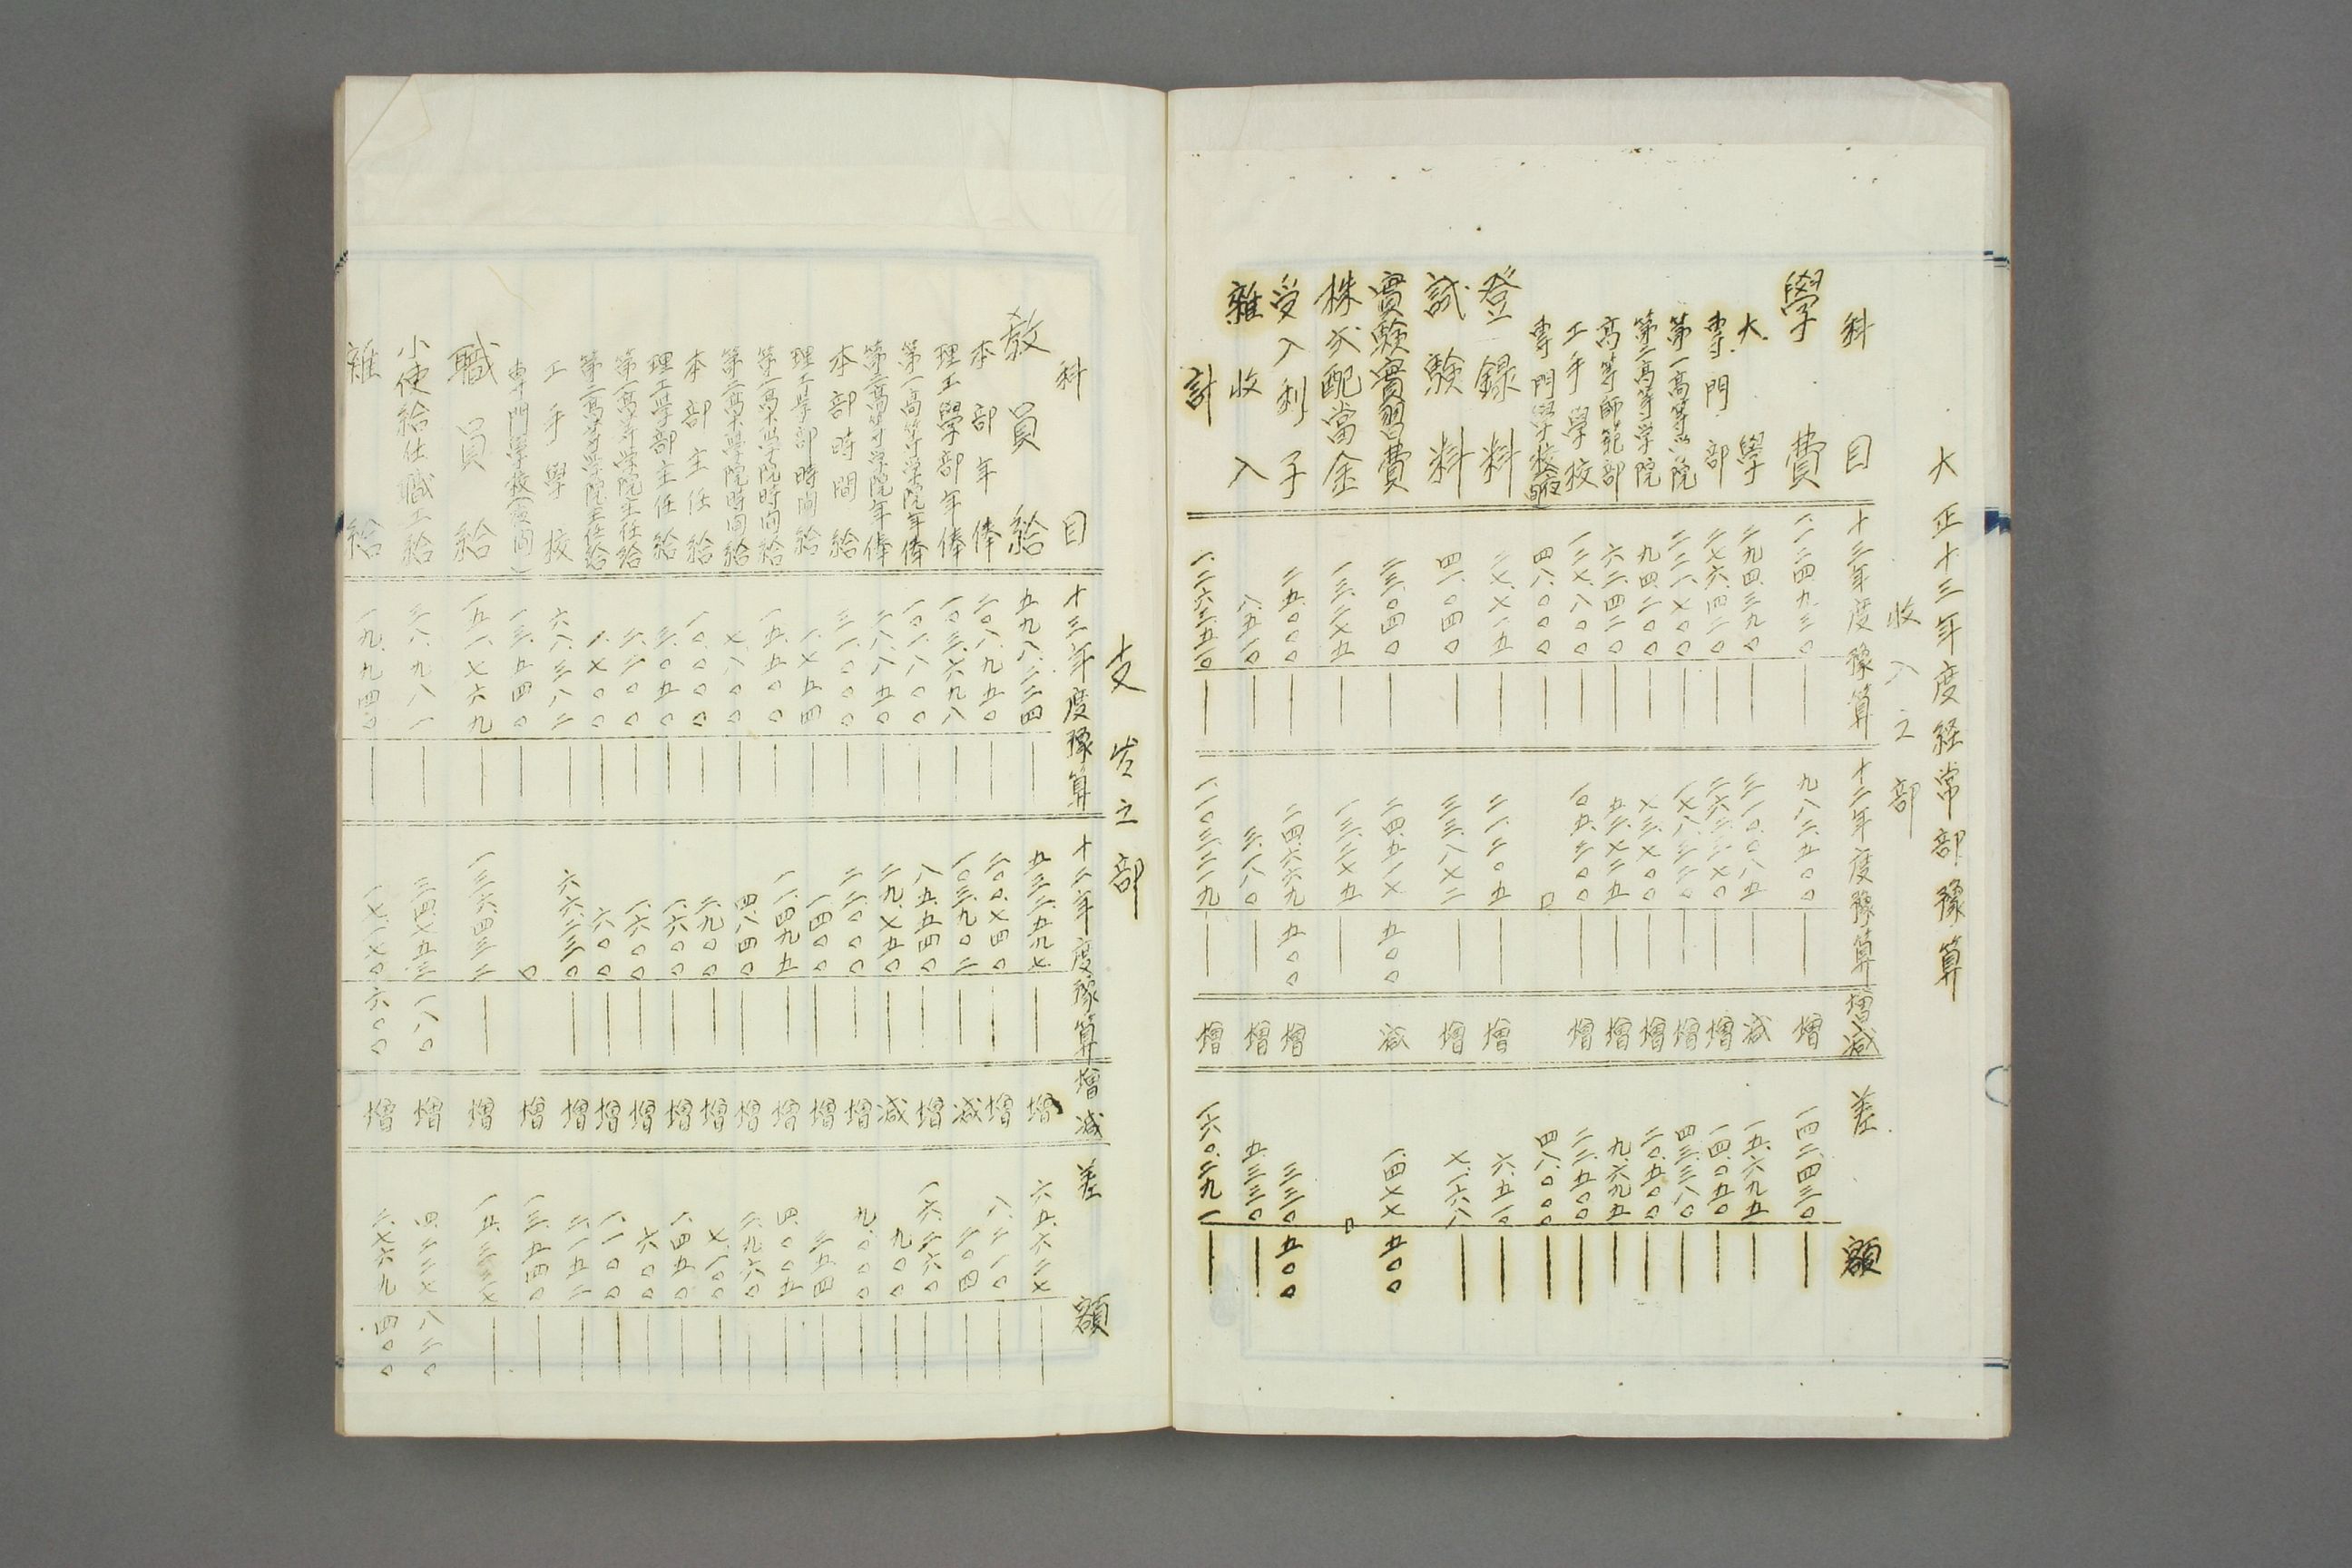 大正十三年度経常部豫算
收入之部
科目 十三年度豫算 十二年度豫算 増減 差額
學費 一、一二四、九三〇 九八二、五〇〇 増 一四二、四三〇
大學 二九四、三九〇 三一〇、〇八五 減 一五、六九五
専門部 二七六、四二〇 二六二、三七〇 増 一四、〇五〇
第一高等学院 二二一、七〇〇 一七八、三二〇 増 四三、三八〇
第二高等学院 九四、二〇〇 七三、七〇〇 増 二〇、五〇〇
高等師範部 六二、四二〇 五二、七二五 増 九、六九五
工手學校 一二七、八〇〇 一〇五、三〇〇 増 二二、五〇〇
専門學校夜間 四八、〇〇〇 〇 四八、〇〇〇
登録料 二七、七一五 二一、二〇五 増 六、五一〇
試験料 四一、〇四〇 三三、八七二 増 七、一六八
實験實習費 二三、〇四〇 二四、五一七 五〇〇 減 一、四七七 五〇〇
株式配當金 一三、二七五 一三、二七五 〇
受入利子 二五、〇〇〇 二四、六六九 五〇〇 増 三三〇 五〇〇
雜收入 八、五一〇 三、一八〇 増 五、三三〇
計 一、二六三、五一〇 一、一〇三、二一九 増 一六〇、二九一
支出之部
科目 十三年度豫算 十二年度豫算 増減 差額
教員給 五九八、二二四 五三二、五九七 増 六五、六二七
本部年俸 二〇八、九五〇 二〇〇、七四〇 増 八、二一〇
理工學部年俸 一〇三、六九八 一〇三、九〇二 減 二〇四
第一高等学院年俸 一〇一、八〇〇 八五、五四〇 増 一六、二六〇
第二高等学院年俸 二八、八五〇 二九、七五〇 減 九〇〇
本部時間給 三一、〇〇〇 二二、〇〇〇 増 九、〇〇〇
理工学部時間給 一、七五四 一、四〇〇 増 三五四
第一高等学院時間給 一五、五〇〇 一一、四九五 増 四、〇〇五
第二高等学院時間給 七、八〇〇 四、八四〇 増 二、九六〇
本部主任給 一〇、〇〇〇 二、九〇〇 増 七、一〇〇
理工学部主任給 三、〇五〇 一、六〇〇 増 一、四五〇
第一高等学院主任給 二、二〇〇 一、六〇〇 増 六〇〇
第二高等学院主任給 一、七〇〇 六〇〇 増 一、一〇〇
工手學校 六八、三八二 六六、二三〇 増 二、一五二
専門學校(夜間) 一三、五四〇 〇 増 一三、五四〇
職員給 一五一、七六九 一三六、四三二 増 一五、三三七
小使給仕職工給 三八、九八一 三四、七五三 一八〇 増 四、二二七 八二〇
雜給 一九、九四〇 一七、一七〇 六〇〇 増 二、七六九 四〇〇